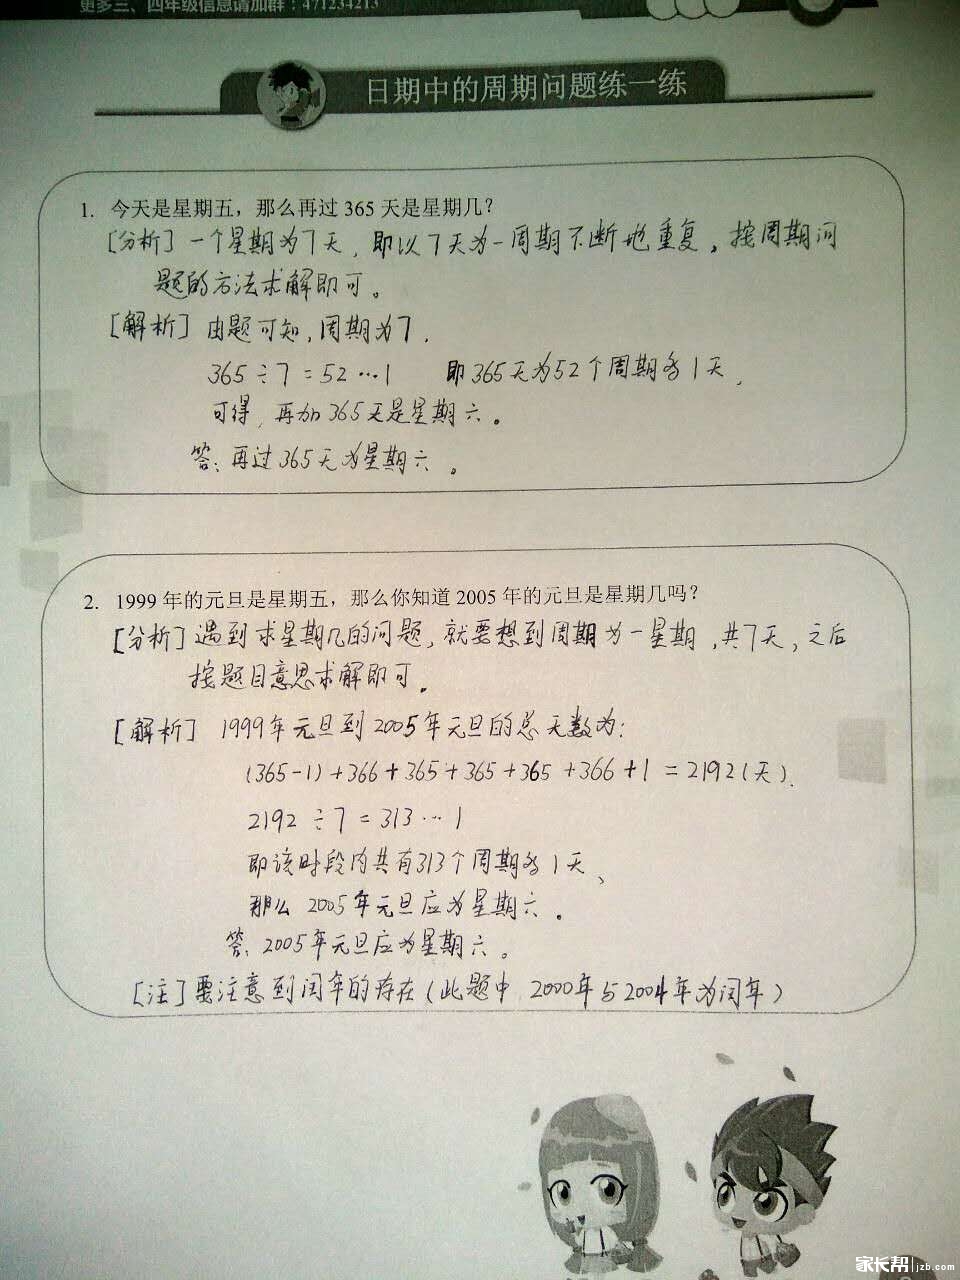 更多三、四年级信息请加群：471234213
日期中的周期问题练一练
1. 今天是星期五，那么再过 365 天是星期几？
[分析] 一个星期为7天，即以7天为一周期不断地重复。按周期问
题的方法求解即可。
[解析] 由题可知，周期为7，
365÷7=52…1 即365天为52个周期多1天，
可得，再加365天是星期六。
答：再过365天为星期六。
2. 1999 年的元旦是星期五，那么你知道 2005 年的元旦是星期几吗？
[分析] 遇到求星期几的问题，就要想到周期为一星期，共7天，之后
按题目意思求解即可。
[解析] 1999年元旦到2005年元旦的总天数为：
(365-1)+366+365+365+365+366+1=2192(天).
2192÷7=313…1
即该时段内共有313个周期多1天、
那么 2005年元旦应为星期六。
答：2005年元旦应为星期六。
[注] 要注意到闰年的存在(此题中，2000年与2004年为闰年)
家长帮 jzb.com